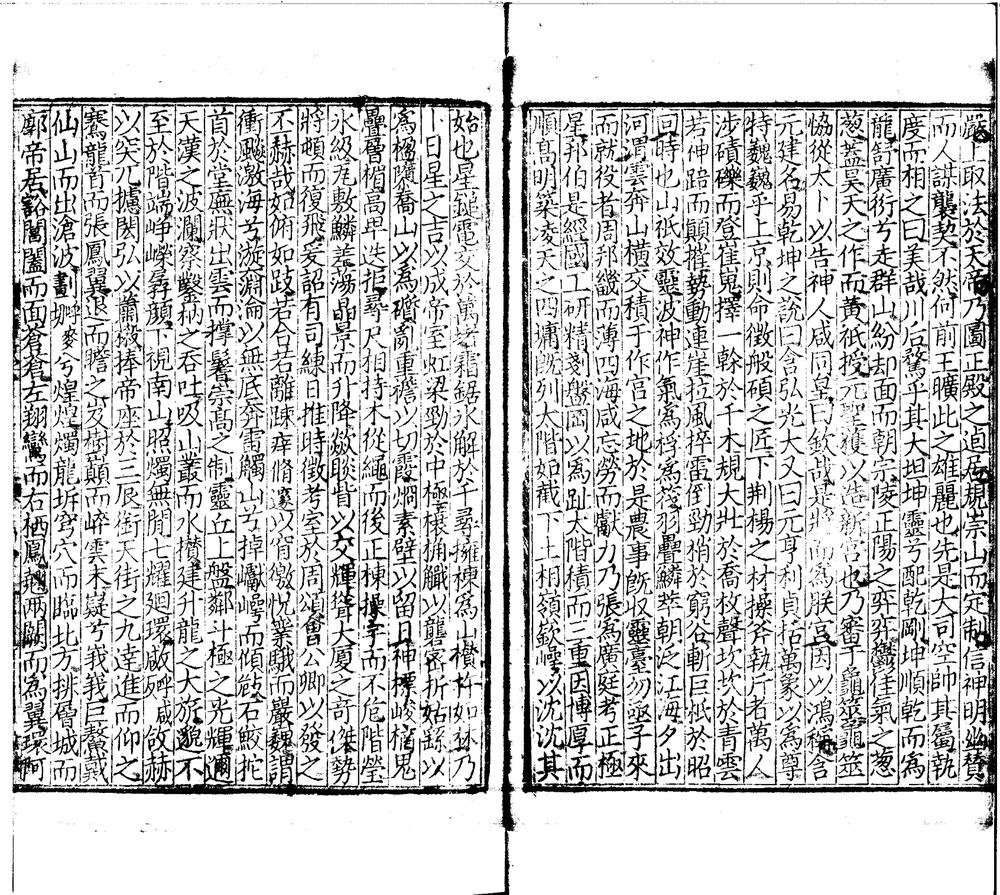 上取法於天帝乃圖正殿之貞居規崇山而定制信神明幽贊
而人謀襲契不然何前王曠此之雄麗也先是大司空帥其屬執
度而相之曰美哉川后騖乎其大坦坤靈兮配乾剛坤順乾而為
龍舒廣衍兮走群山紛却面而朝宗陵正陽之弈弈鬱佳氣之葱
葱蓋昊天之作而黃祇授元聖獲以造新宮也乃審于龜筮龜筮
恊從太卜以告神人咸同皇曰欽哉是將而為朕宮因以鴻稱含
元建名易乾坤之說曰含弘光大又曰元亨利貞括萬象以為尊
特巍巍乎上京則命徵般碩之匠下荆楊之材操斧執斤者萬人
涉磧礫而登崔嵬擇一榦於千木規大壯於喬枚聲坎坎於青雲
若神踣而顛摧勢動連崖拉風捽雷倒勁梢於窮谷斬巨柢於昭
回時也山祇效靈波神作氣為桴為筏羽疊鱗萃朝泛江海夕出
河渭雲奔山橫交積于作宮之地於是農事既收靈臺勿亟子來
而就役者周邦畿而薄四海咸忘勞而獻力乃張為廣庭考正極
星邦伯是經國工研精剗盤岡以為趾大階積而三重因博厚而
順高明築凌天之四墉既列太階如截下土相嶺嶔以沈沈其
始也星鎚電交於萬霜鋸氷解於千尋擁棟為山攅杵如林乃
卜日星之吉以成帝室虹梁勁於中極榱桷以礱密折姑繇以
為楹隳喬山以為礩亂重櫩以切霞烱素壁以留日神標峻樀鬼
疊層楣高卑迭拒尋尺相持木從繩而後正棟操宇而不危階瑩
氷級瓦敷鱗差蕩晶景而升降歘睒眥以交輝聳大厦之奇傑勢
將頓而復飛爰詔有司練日推時徵考室於周頌會公卿以發之
不赫哉如俯如跂若合若離踈翛邃以窅怳業峨而嚴巍謂
衝飈激海兮漩淵淪以無底奔雷觸山兮掉巘崿而傾攲石鮫拕
首於堂廡狀出雲而撑鬐崇高之制靈丘上盤鄰斗極之光輝邇
天漢之波瀾察鑿枘之吞吐吸山叢而水攅建升龍之大旂邈不
至於階端崢嶸孱顏下視南山照燭無間七耀迴環啟呀歙赫
以突兀攄閎弘以蕭敞捧帝座於三辰街天街之九逵進而仰之
騫龍首而張鳳翼退而瞻之岌樹巔而崪雲末嶷兮峩峩巨鰲戴
仙山而出滄波劃兮煌煌燭龍坼穹穴而臨北方排層城而
廓帝居豁閶闔而面蒼蒼左翔鸞而右栖鳳翹兩闕而為翼環阿